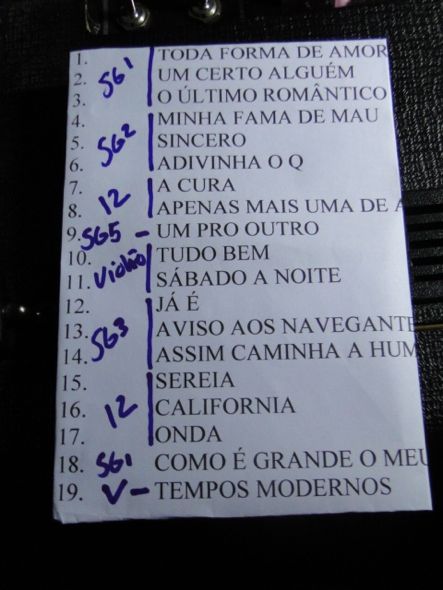 1. TODA FORMA DE AMOR
2. SG1 UM CERTO ALGUÉM
3. O ÚLTIMO ROMÂNTICO
4. MINHA FAMA DE MAU
5. SG2 SINCERO
6. ADIVINHA O Q
7. 12 A CURA
8. APENAS MAIS UMA DE A
9. SG5 - UM PRO OUTRO
10. Violão TUDO BEM
11. SÁBADO A NOITE
12. JÁ É
13. SG3 AVISO AOS NAVEGANTE
14. ASSIM CAMINHA A HUM
15. SEREIA
16. 12 CALIFORNIA
17. ONDA
18. SG1 COMO É GRANDE O MEU
19. V - TEMPOS MODERNOS